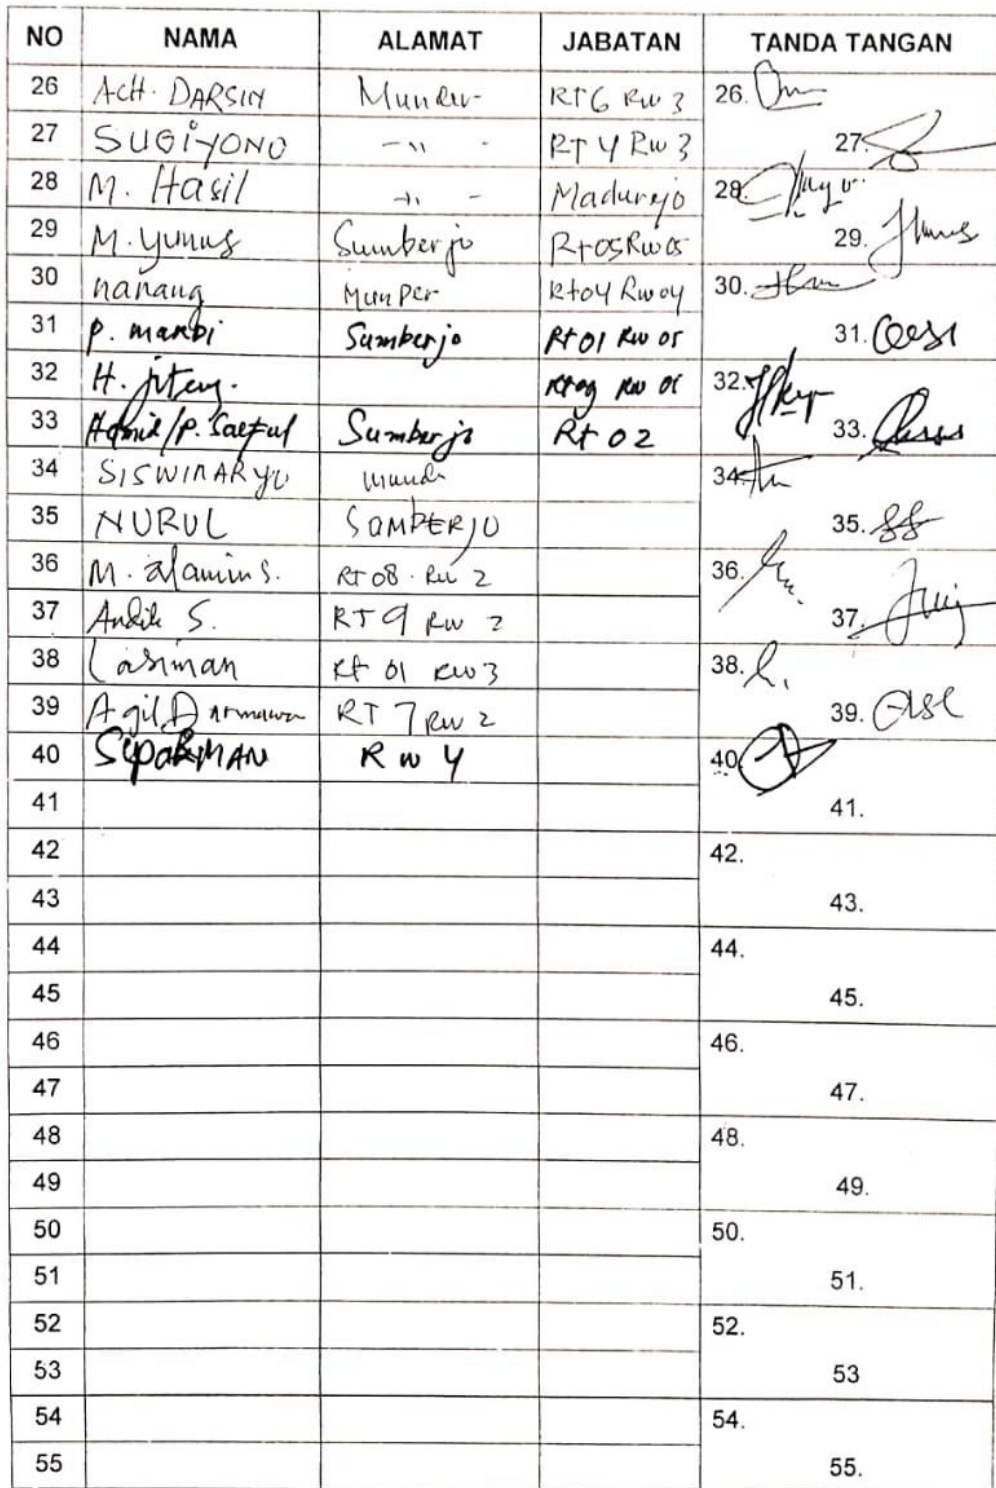 NO NAMA ALAMAT JABATAN TANDA TANGAN
26 ACH. DARSIN Munder RT6 RW 3 26.
27 SUGIYONO -"- RT 4 RW 3 27.
28 M. Hasil -"- Madurejo 28.
29 M. Yunus Sumberjo Rt05 Rw05 29.
30 nanang Munder Rt04 Rw04 30.
31 P. marbi Sumberjo Rt 01 RW 05 31.
32 H. jiteng. RW 01 32.
33 Sumberjo Rt 02 33.
34 SISWINARYO 34.
35 NURUL SAMBERJO 35.
36 M. alamin S. RT 08 . RW 2 36.
37 Andik S. RT 9 RW 2 37.
38 Lasiman Rt 01 RW 3 38.
39 Agil Darmawan RT 7 RW 2 39.
40 SUPARMAN RW 4 40.
41 41.
42 42.
43 43.
44 44.
45 45.
46 46.
47 47.
48 48.
49 49.
50 50.
51 51.
52 52.
53 53
54 54.
55 55.